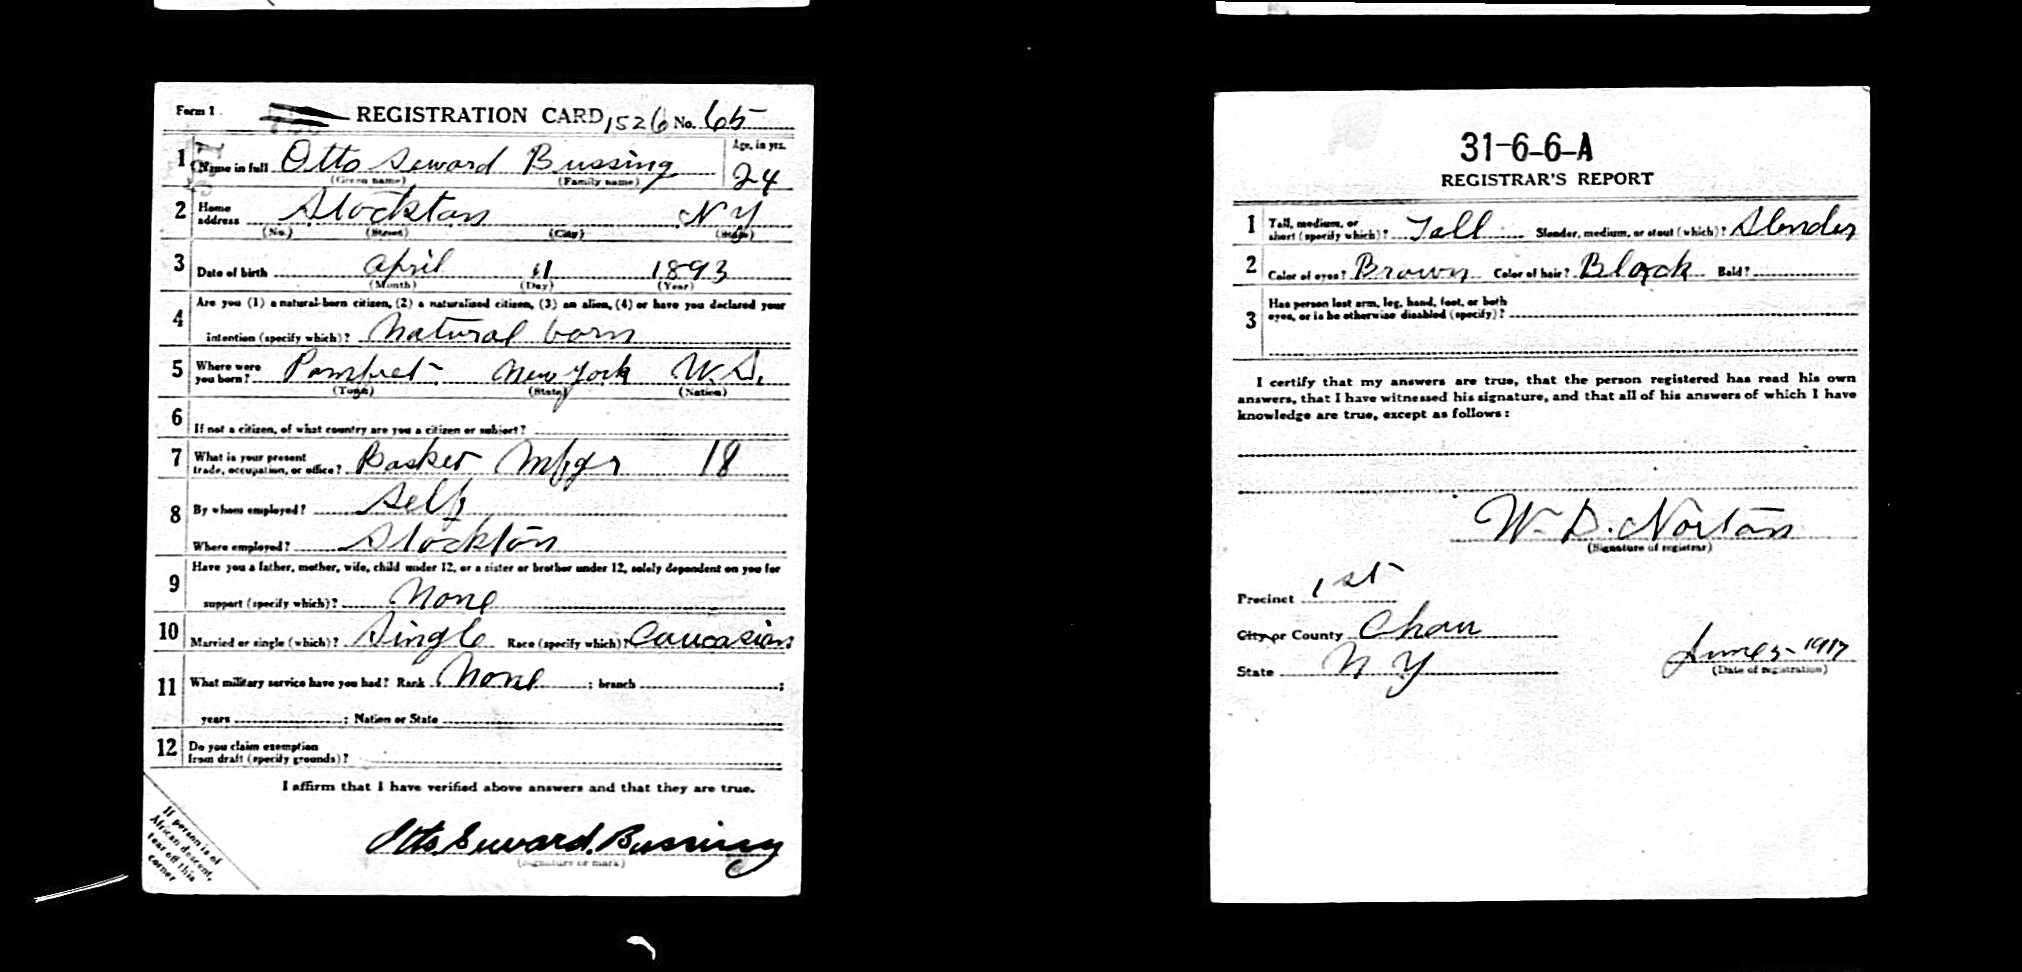 Form 1 REGISTRATION CARD 1526 No. 65
1 Name in full Otto Seward Bussing Age, in yrs. 24
(Given name) (Family name)
2 Home address Stockton N Y
(No.) (Street) (City) (State)
3 Date of birth April 11 1893
(Month) (Day) (Year)
4 Are you (1) a natural-born citizen, (2) a naturalized citizen, (3) an alien, (4) or have you declared your
intention (specify which)? Natural born
5 Where were you born? Pomfret New York U.S.
(Town) (State) (Nation)
6 If not a citizen, of what country are you a citizen or subject?
7 What is your present trade, occupation, or office? Basket Mfgr 18
8 By whom employed? Self
Where employed? Stockton
9 Have you a father, mother, wife, child under 12, or a sister or brother under 12, solely dependent on you for
support (specify which)? None
10 Married or single (which)? Single Race (specify which)? Caucasian
11 What military service have you had? Rank None ; branch ;
years ; Nation or State
12 Do you claim exemption from draft (specify grounds)?
I affirm that I have verified above answers and that they are true.
Otto Seward Bussing
(Signature or mark)
If person is of
African descent,
tear off this
corner
31-6-6-A
REGISTRAR'S REPORT
1 Tall, medium, or short (specify which)? Tall Slender, medium, or stout (which)? Slender
2 Color of eyes? Brown Color of hair? Black Bald?
3 Has person lost arm, leg, hand, foot, or both
eyes, or is he otherwise disabled (specify)?
I certify that my answers are true, that the person registered has read his own
answers, that I have witnessed his signature, and that all of his answers of which I have
knowledge are true, except as follows:
W. D. Norton
(Signature of registrar)
Precinct 1st
City or County Chau
State N Y
June 5 - 1917
(Date of registration)